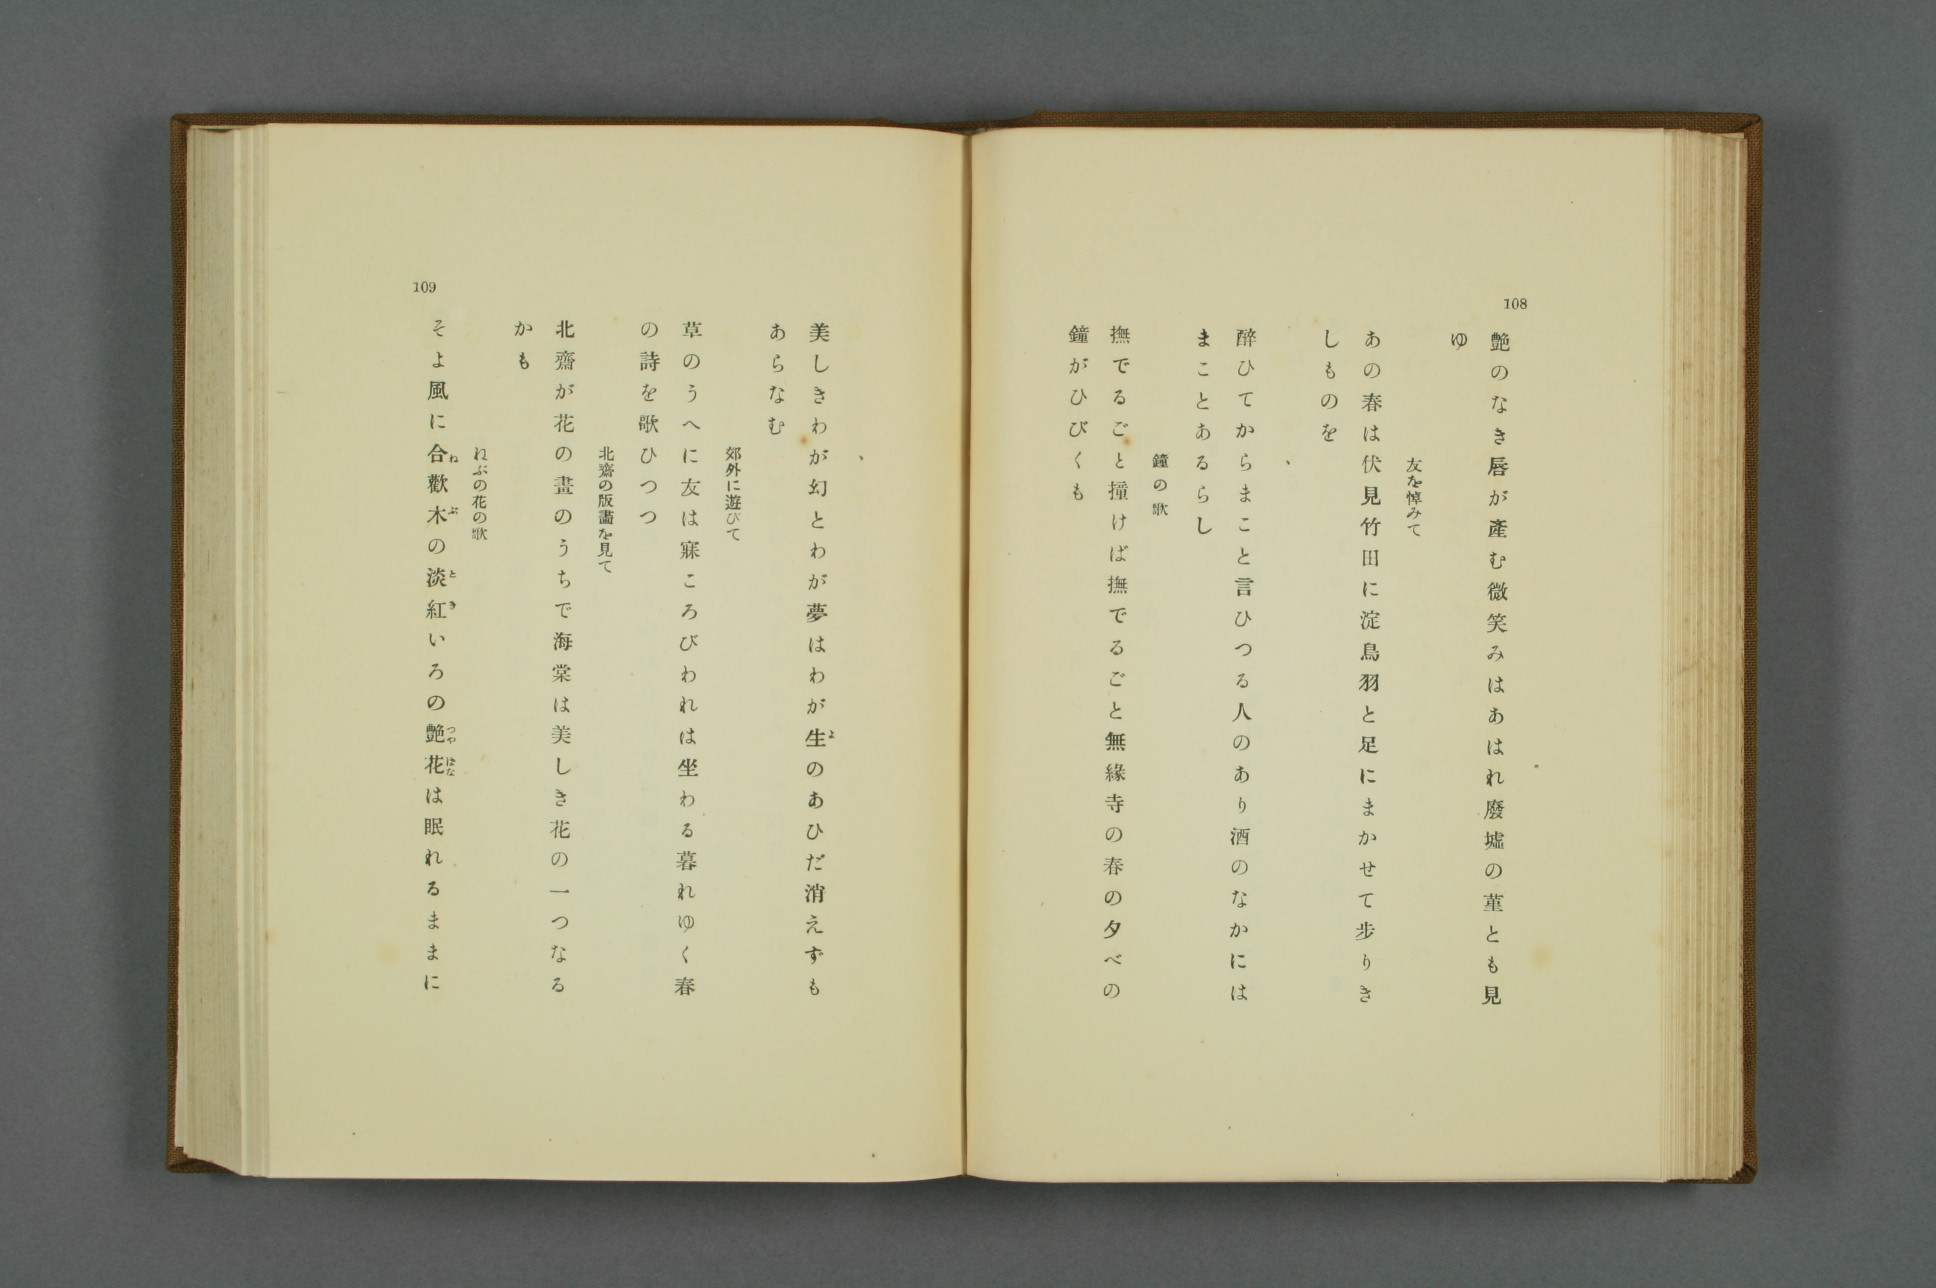 108
艶のなき唇が產む微笑みはあはれ廢墟の菫とも見
ゆ
友を悼みて
あの春は伏見竹田に淀鳥羽と足にまかせて步りき
しものを
、
醉ひてからまこと言ひつる人のあり酒のなかには
まことあるらし
鐘の歌
撫でるごと撞けば撫でるごと無緣寺の春の夕べの
鐘がひびくも
、
美しきわが幻とわが夢はわが生のあひだ消えずも
あらなむ
郊外に遊びて
草のうへに友は寐ころびわれは坐わる暮れゆく春
の詩を歌ひつつ
北齋の版畵を見て
北齋が花の畫のうちで海棠は美しき花の一つなる
かも
ねぶの花の歌
そよ風に合歡木の淡紅いろの艶花は眠れるままに
109